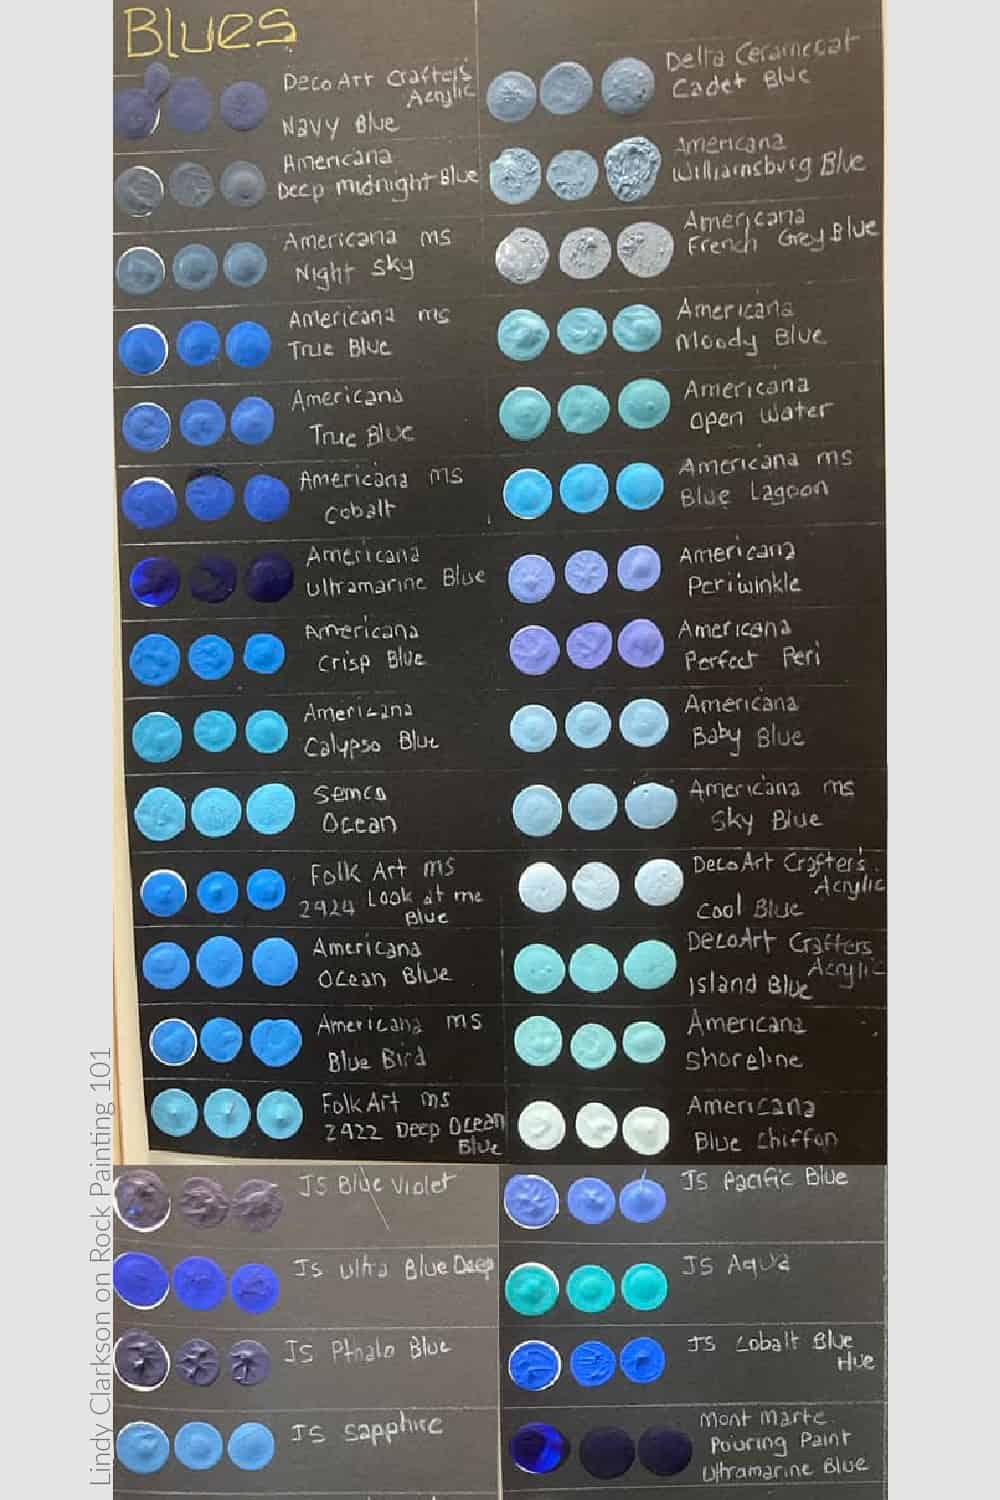 Blues
DecoArt Crafter's
Acrylic
Navy Blue
Americana
Deep midnight Blue
Americana ms
Night Sky
Americana ms
True Blue
Americana
True Blue
Americana ms
Cobalt
Americana
Ultramarine Blue
Americana
Crisp Blue
Americana
Calypso Blue
Semco
Ocean
Folk Art ms
2924 Look at me
Blue
Americana
Ocean Blue
Americana ms
Blue Bird
FolkArt ms
2922 Deep Ocean
Blue
Delta Ceramcoat
Cadet Blue
Americana
Williamsburg Blue
Americana
French Grey Blue
Americana
Moody Blue
Americana
Open Water
Americana ms
Blue Lagoon
Americana
Periwinkle
Americana
Perfect Peri
Americana
Baby Blue
Americana ms
Sky Blue
DecoArt Crafter's
Acrylic
Cool Blue
DecoArt Crafters
Acrylic
Island Blue
Americana
Shoreline
Americana
Blue Chiffon
JS Blue Violet
JS Ultra Blue Deep
JS Pthalo Blue
JS Sapphire
JS Pacific Blue
JS Aqua
JS Cobalt Blue
Hue
Mont Marte
Pouring Paint
Ultramarine Blue
Lindy Clarkson on Rock Painting 101